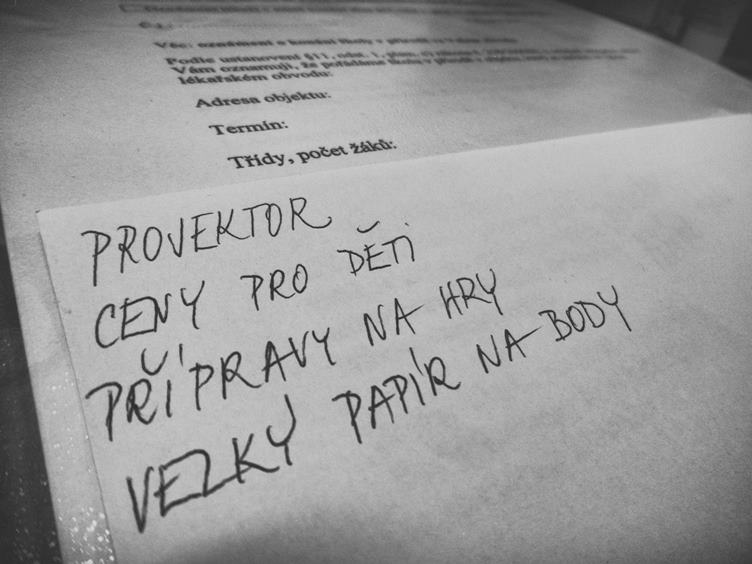 Věc: oznámení o konání školy v přírodě
Podle ustanovení §11, odst. 1, písm.
Vám oznamuji, že pořádáme školu v přírodě v
lékařském obvodu:
Adresa objektu:
Termín:
Třídy, počet žáků:
PROVEKTOR
CENY PRO DĚTI
PŘÍPRAVY NA HRY
VELKÝ PAPÍR NA BODY